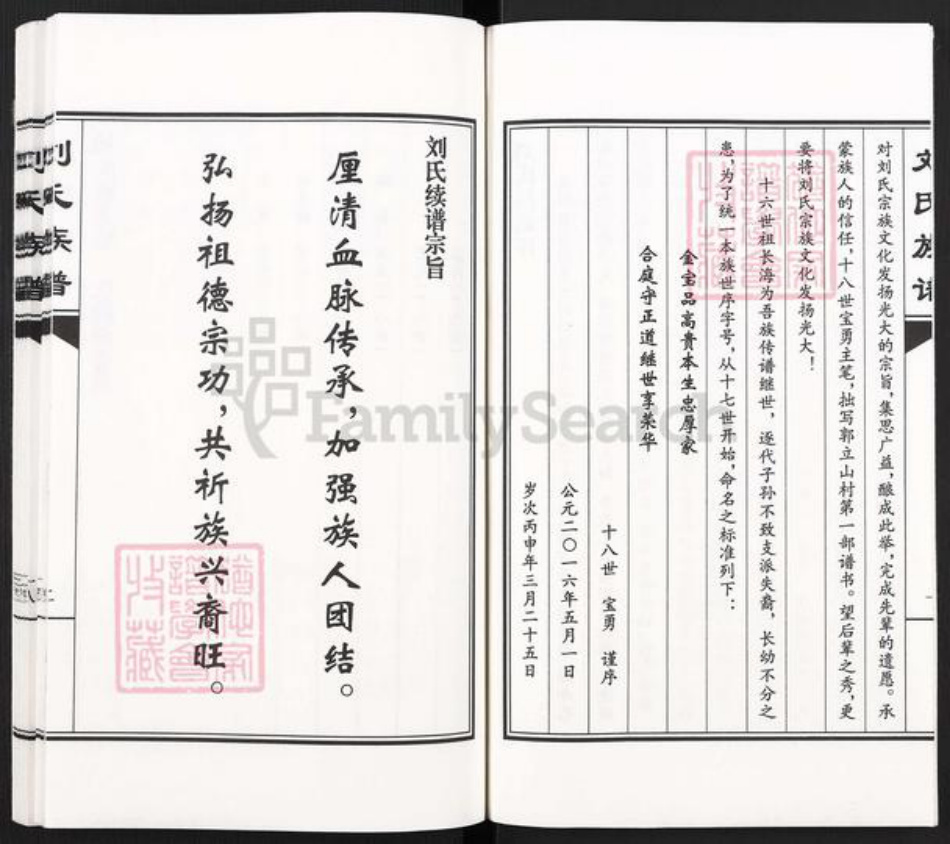 刘氏族谱
对刘氏宗族文化发扬光大的宗旨，集思广益，酿成此举，完成先辈的遗愿。承
蒙族人的信任，十八世宝勇主笔，拙写郭立山村第一部谱书。望后辈之秀，更
要将刘氏宗族文化发扬光大！
十六世祖长海为吾族传谱继世，逐代子孙不致支派失裔，长幼不分之
患，为了统一本族世序字号，从十七世开始，命名之标准列下：
金宝品高贵本生忠厚家
合庭守正道继世享荣华
十八世 宝勇 谨序
公元二〇一六年五月一日
岁次丙申年三月二十五日
刘氏续谱宗旨
厘清血脉传承，加强族人团结。
弘扬祖德宗功，共祈族兴裔旺。
刘氏族谱
FamilySearch